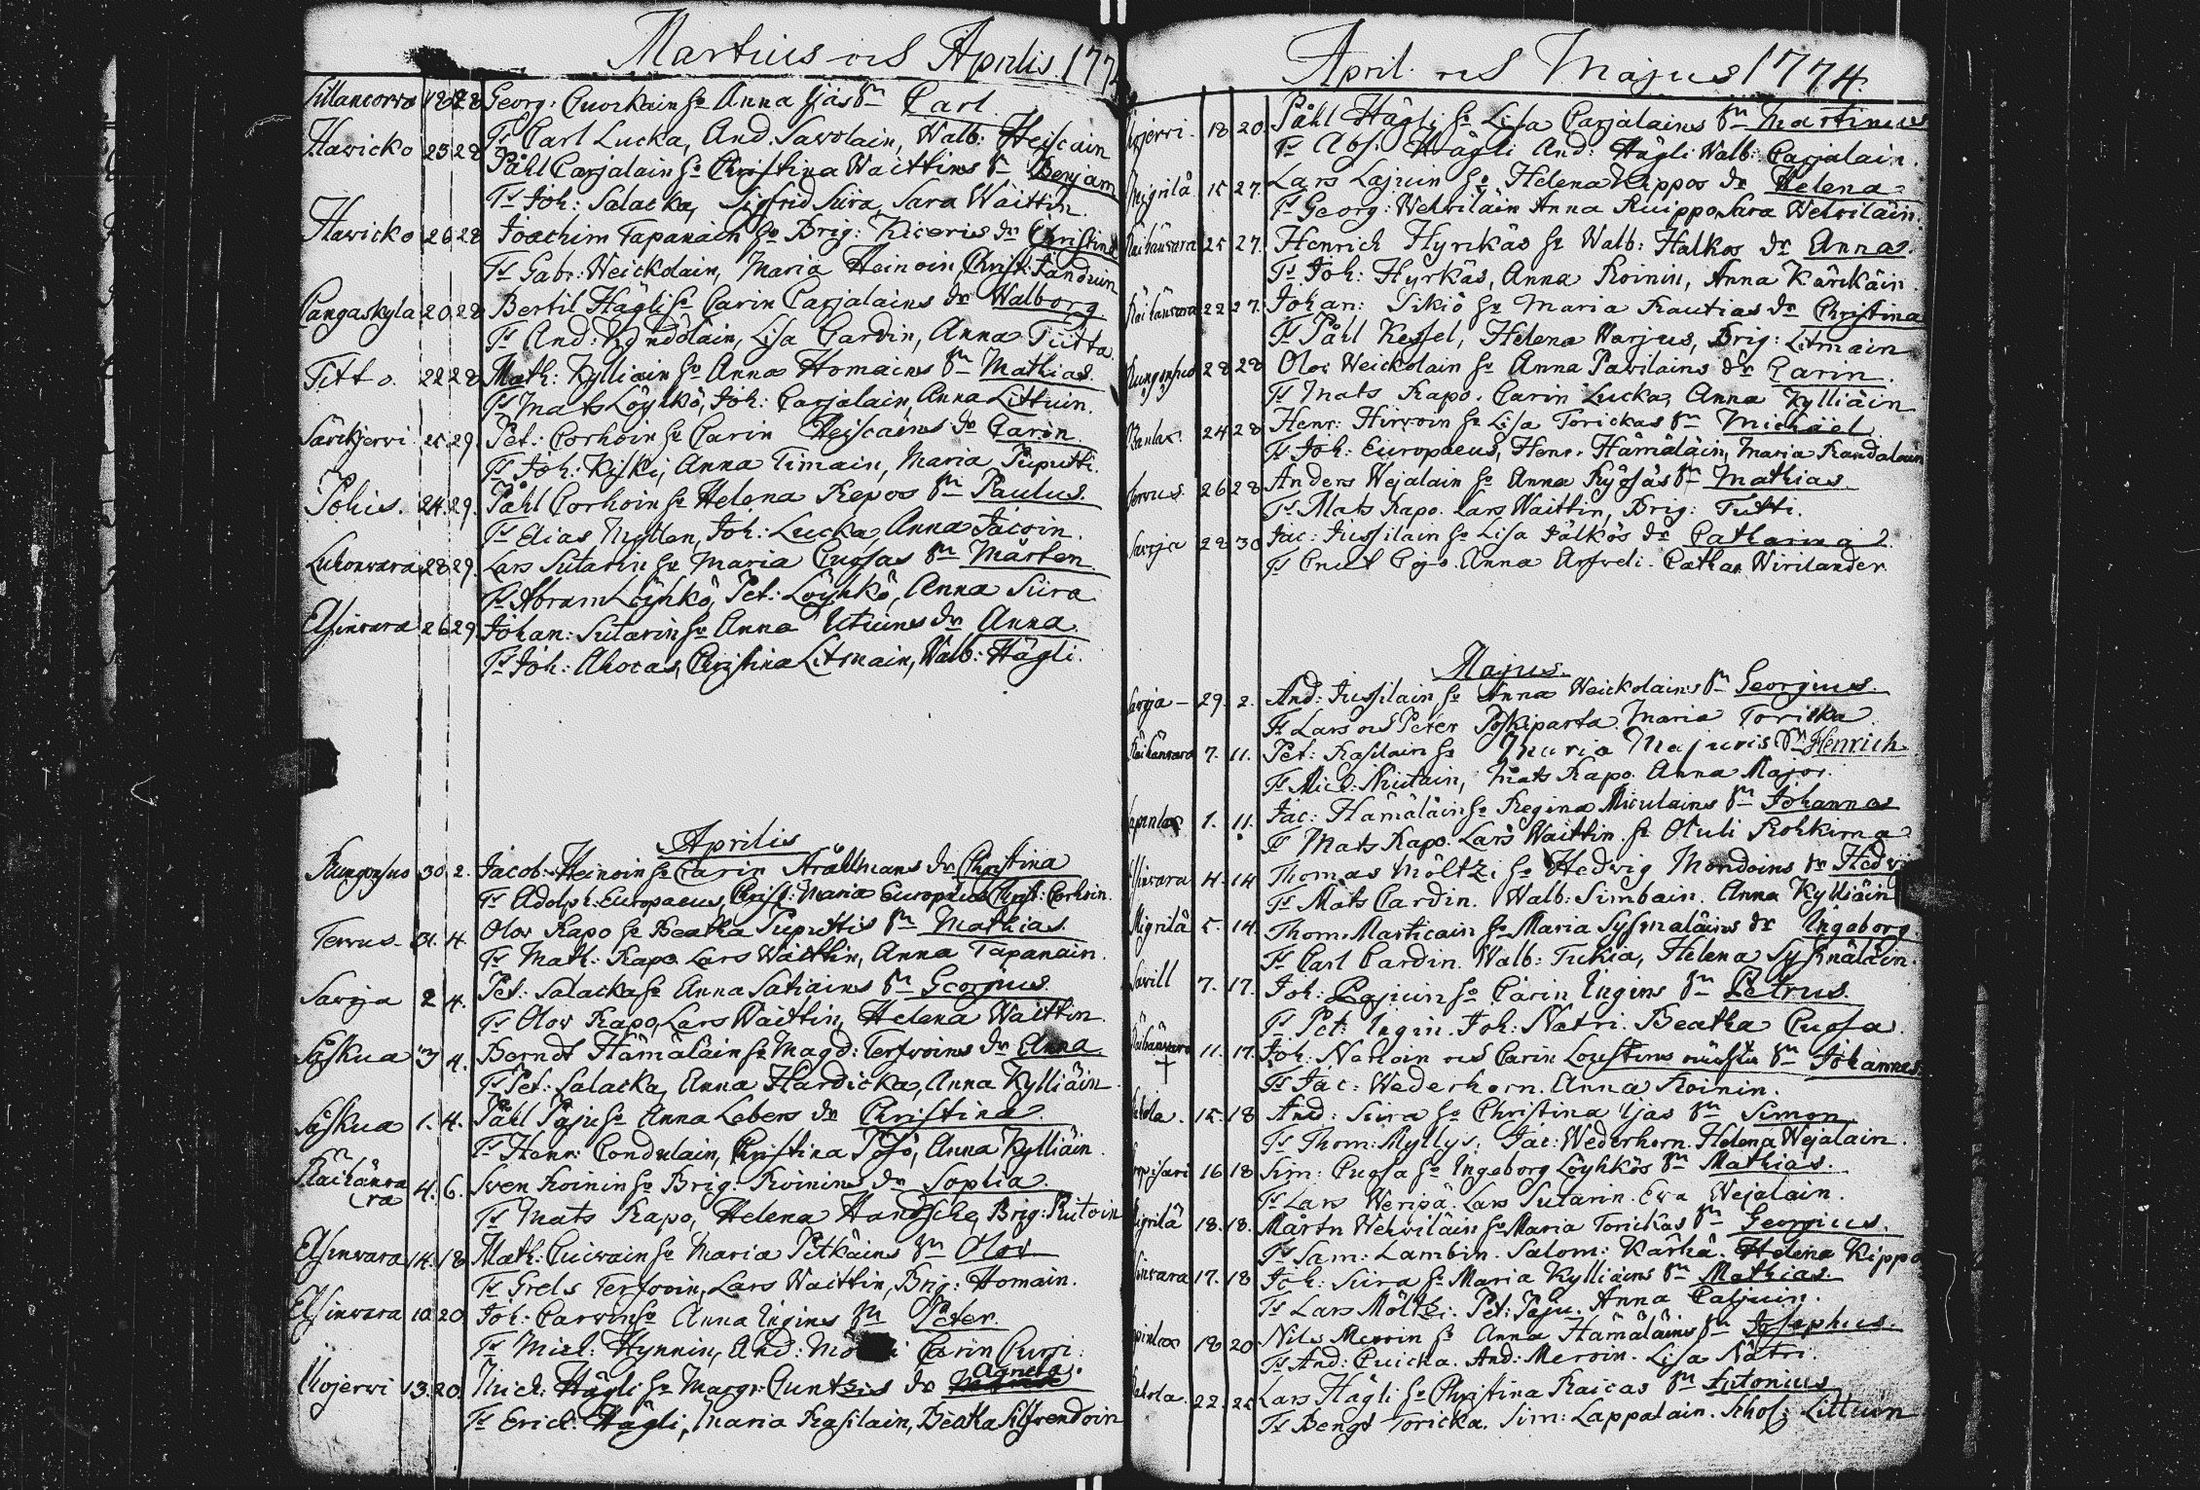 Martius och Aprilis 1774
Sillancorva 18 28 Georg: Cuorkain hu Anna Ijäs Sn Carl
Ts Carl Lucka, And. Savolain, Walb: Heiscain
Hawicko 25 28 Påhl Carjalain hu Christina Waittins Sn Benjam
Ts Joh: Salacka, Sigfrid Siira, Sara Waittin.
Hawicko 26 28 Joachim Tapanain hu Brig: Kiceris dr Christina
Ts Gabr: Weickolain, Maria Heinoin, Christ:
Cangaskyla 20 28 Bertil Hägli hu Carin Carjalains dr Walborg
Ts And: Köndölain, Lisa Cardin, Anna Tiitta
Titto. 22 28 Math: Kylliain hu Anna Homains Sn Mathias.
Ts Mats Löyhkö, Joh: Carjalain, Anna Littuin.
Särkjervi 25 29. Pet: Corhoin hu Carin Heiscains dr Carin.
Ts Joh: Kiski, Anna Timain, Maria Puputti.
Pohis. 24. 29. Påhl Corhoin hu Helena Repos Sn Paulus.
Ts Elias Nyllen, Joh: Lucka, Anna Jäcoin.
Lukonwara 28 29. Lars Sutarin hu Maria Cuosas Sn Mårten.
Ts Abram Löyhkö, Pet: Löyhkö, Anna Siira
Elsinvara 26 29. Johan: Sutarin hu Anna Utuins dr Anna.
Ts Joh: Ahocas, Christina Litmain, Walb: Hägli.
Aprilis
Rungonsuo 30. 2. Jacob: Heinoin hu Carin Strållmans dr Christina
Ts Adolph: Europaeus, Christ: Maria Europaeus Christ: Corhoin.
Tervus 31. 4. Olov Kapo hu Beatha Puputtis Sn Mathias.
Ts Math: Kapo. Lars Waittin, Anna Tapanain.
Savoja 2 4. Pet: Salacka hu Anna Satiains Sn Georgius.
Ts Olov Kapo, Lars Waittin, Helena Waittin.
Soskua 3 4. Berndt Hämäläin hu Magd: Tervoins dr Anna.
Ts Pet: Salacka, Anna Hardicka, Anna Kylliäin
Soskua 1. 4. Påhl Paju hu Anna Lebens dr Christina.
Ts Henr: Condulain, Christina Pösö, Anna Kylliäin.
Räihänvara 4. 6. Sven Roinin hu Brig: Roinins dr Sophia.
Ts Mats Kapo, Helena Handsche, Brig: Riitoin
Elsinvara 14. 18 Math: Cuivain hu Maria Pitkäins Sn Olov
Ts Grels Tervoin, Lars Waittin, Brig: Homain.
Elsinvara 10. 20. Joh: Carvin hu Anna Ingins Sn Peter.
Ts Mich: Hynnin, And: Carin Curri.
Uojervi 13. 20. Mich: Hägli hu Margr: Cuntzis dr Agneta.
Ts Erich: Hägli, Maria Rasilain, Beatha Silfvendoin
April: och Majus 1774.
Uojervi. 18. 20. Påhl Hägli hu Lisa Carjalains Sn Martinus
Ts Abs: Hägli And: Hägli Walb: Carjalain.
Migrilä 15 27. Lars Lajun hu Helena Kippos dr Helena
Ts Georg: Wehviläin Anna Ruippo, Sara Wehviläin.
Räihänvara 25 27. Henrich Hyrckäs hu Walb: Halkos dr Anna.
Ts Joh: Hyrkäs, Anna Roinin, Anna Kärckäin.
Räihänvara 22 27. Johan: Sikiö hu Maria Rautias dr Christina
Ts Påhl Kessel, Helena Varjus, Brig: Litmain
Rungonsuo 28 28 Olov Weickolain hu Anna Pavilains dr Carin.
Ts Mats Kapo. Carin Lucka, Anna Kylliäin
24 28 Henr: Hirvoin hu Lisa Torickas Sn Michäel
Ts Joh: Europaeus, Henr: Hämäläin, Maria Randalain
Terrus 26 28 Anders Wejalain hu Anna Ryösäs Sn Mathias.
Ts Mats Kapo. Lars Waittin, Brig: Tutti.
Savoja 22 30 Jac: Jussilain hu Lisa Jälkös dr Catharina
Ts Cnut Cojo. Anna Arfveli. Cathar. Wirilander.
Majus.
Savoja 29. 2. And: Jussilain hu Anna Weickolains Sn Georgius.
Ts Lars och Peter Poskiparta. Maria Toricka.
Räihänvara 7. 11. Pet: Rasilain hu Maria Majuris Sn Henrich
Ts Mich: Niutain, Mats Kapo. Anna Major.
Lapinlax 1. 11. Jac: Hämäläin hu Regina Miculains Sn Johannes
Ts Mats Kapo. Lars Waittin. hu Otuli Rohkima
Elsinvara 4. 14 Thomas Möltzi hu Hedvig Mondoins dr Hedvi
Ts Mats Cardin. Walb: Simbain. Anna Kylliäin
Migrilä 5. 14. Thom: Marticain hu Maria Sysmäläins dr Ingeborg
Ts Carl Cardin. Walb: Tukia, Helena Sysmäläin.
Savill 7. 17. Joh: Pajuin hu Carin Ingins Sn Petrus.
Ts Pet: Ingin. Joh: Nätri. Beatha Cuosa.
Räihänvara 11. 17. Joh: Narioin och Carin Loustins oächta Sn Johannes.
Ts Jac: Wederhorn. Anna Roinin.
15. 18 And: Siira hu Christina Ijas Sn Simon
Ts Thom: Myllys. Jac: Wederhorn. Helena Wejalain.
16 18 Sim: Cuosa hu Ingeborg Löyhkös Sn Mathias.
Ts Lars Weripä. Lars Sutarin. Eva Wejalain.
Migrilä 18. 18. Mårtn Wehviläin hu Maria Torickas Sn Georgius.
Ts Sam: Lambin. Salom: Kärhä. Helena Kippo
Elsinvara 17. 18 Joh: Siira hu Maria Kylliäins Sn Mathias.
Ts Lars Möltzi. Pet: Paju. Anna Paljuin.
Lapinlax 18 20 Nils Meroin hu Anna Hämäläins Sn Josephus.
Ts And: Cuicka. And: Meroin. Lisa Nätri.
22. 25 Lars Hägli hu Christina Raicas Sn Antonius
Ts Bengt Toricka. Sim: Lappalain. Schol: Littuin